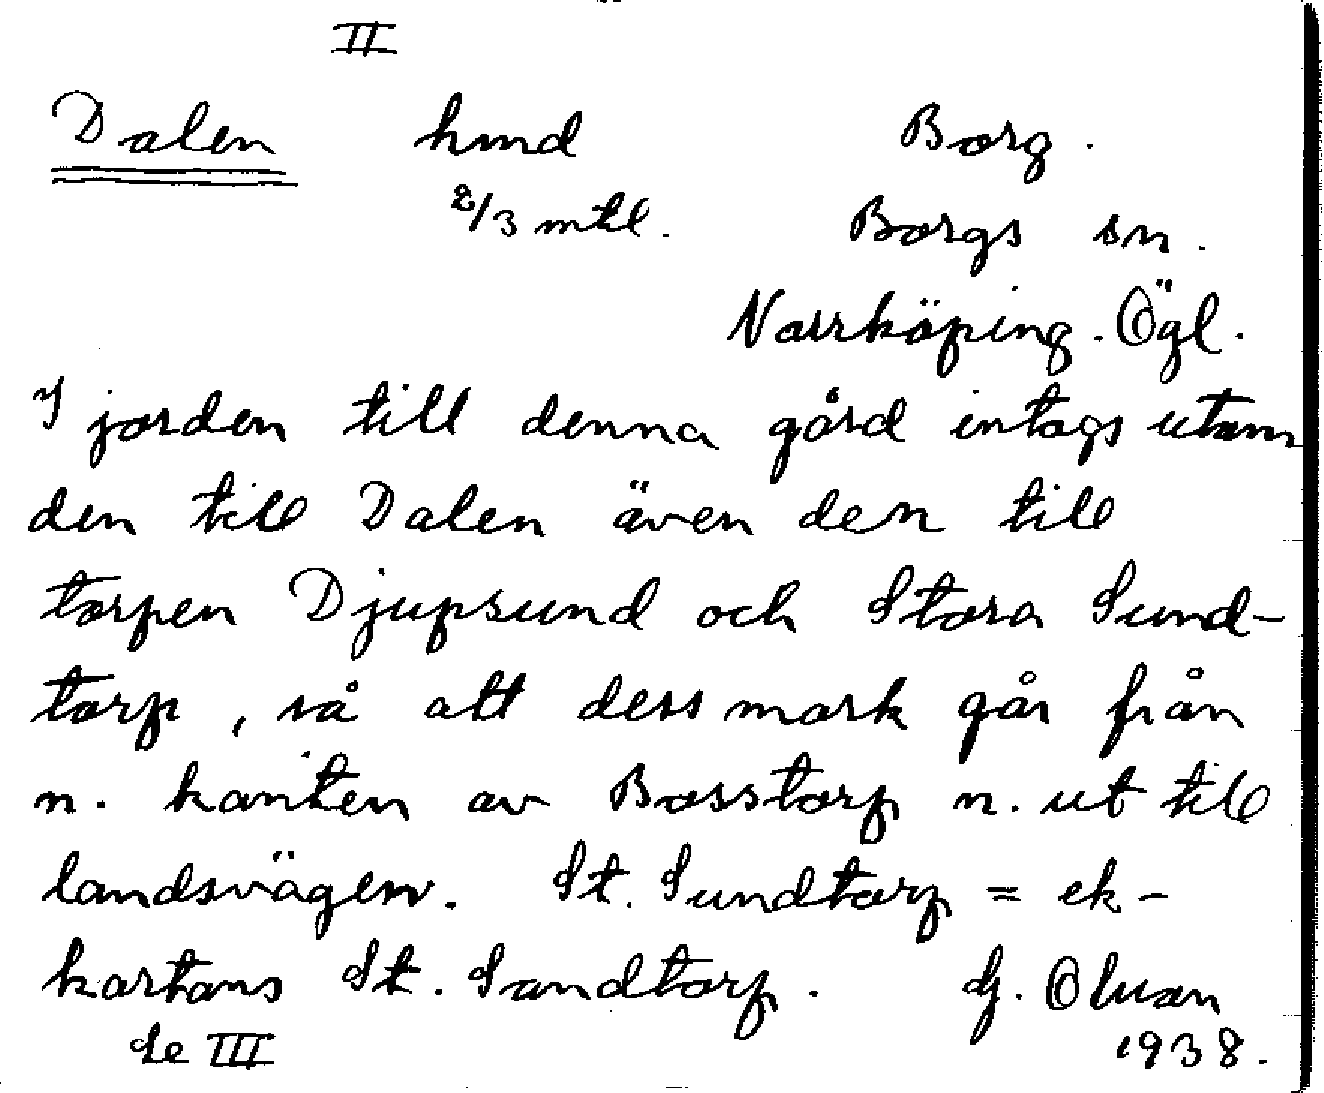 II
Dalen hmd Borg.
2/3 mtl. Borgs sn.
Norrköping. Ögl.
I jorden till denna gård intogs utom
den till Dalen även den till
torpen Djupsund och Stora Sund-
torp, så att dess mark går från
n. kanten av Bosstorp n. ut till
landsvägen. St. Sundtorp = ek-
kartans St. Sandtorp. G.
Se III 1938.